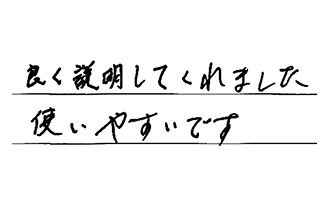 良く説明してくれました
使いやすいです